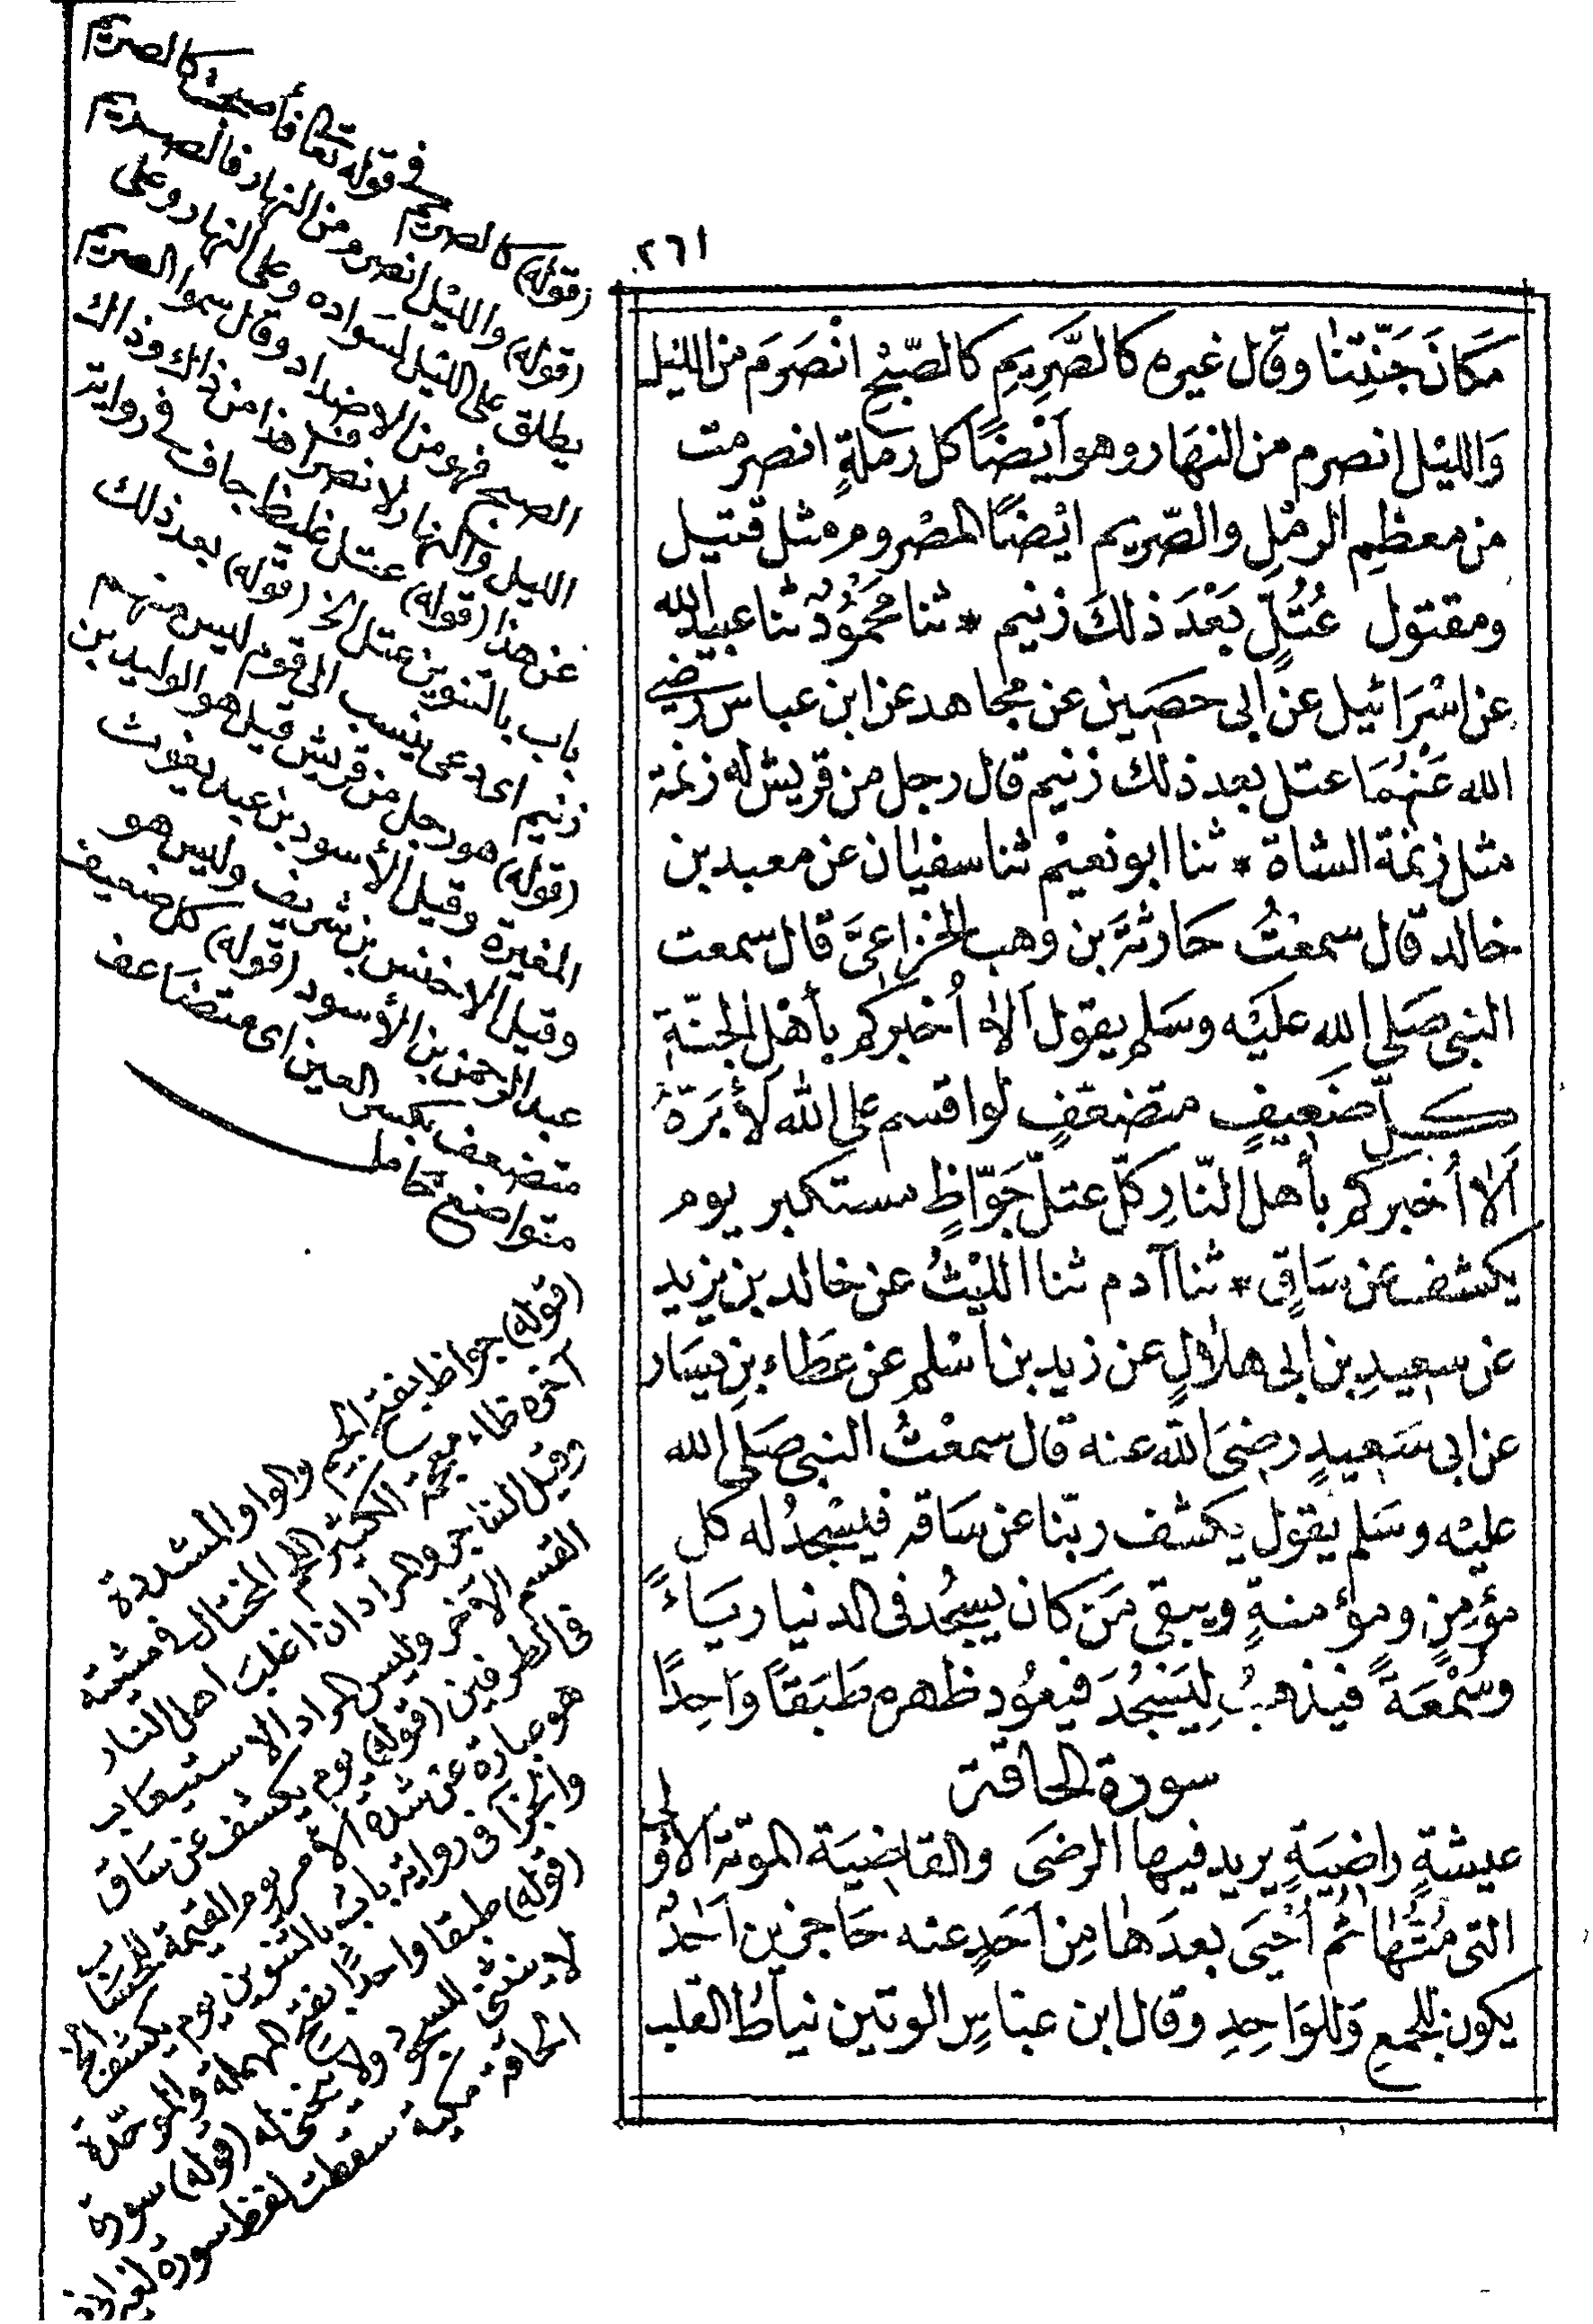 ٢٦١
مَكَانَ جَنَّتِنَا وقال غيره كالصَّرِيمِ كالصّبْحِ انْصَرَمَ من الليْل
وَالليْل انصرم من النهَار وهو أيْضًا كل رَملةٍ انصرمت
من معظمِ الرمْلِ والصّريم ايْضًا المصْروم مثل قتيل
ومقتول عُتُلٍّ بَعْدَ ذلكَ زنيم * ثنا محمُودٌ ثنا عبيد الله
عن اسْرَائيل عن ابى حصَين عن مجاهد عن ابن عباس رضى
الله عَنْهُمَا عتل بعد ذلك زنيم قال رجل من قريش له زنمة
مثل زنمة الشاة * ثنا ابو نعيْم ثنا سفيَان عن معبد بن
خالد قال سمعْتُ حَارثةَ بن وَهب الخزاعىَّ قال سمعت
النبى صَلى الله عليْه وسَلم يقول ألا أُخبركم بأهْل الجنّةِ
كلّ ضَعِيفٍ متضعّفٍ لو اقسم على الله لَأَبَرَّهُ
ألا أُخبركم بأهل النّارِ كلّ عتلّ جَوّاظٍ مستكبر يوم
يكشف عن سَاقٍ * ثنا آدم ثنا الليْثُ عن خالد بن يزيد
عن سعِيدِ بن أبى هلالٍ عن زيد بن أسْلم عن عَطاء بنِ يسَار
عن ابى سَعِيدٍ رضىَ الله عنه قال سمعْتُ النبى صَلى الله
عليْه وسَلم يقول يكشف ربّنا عن سَاقه فيسْجدُ له كل
مؤمِنٍ ومؤمنةٍ ويبقى مَن كان يسجُد فى الدنيا ريَاءً
وسُمْعَةً فيذهبُ لِيَسْجُدَ فيعُود ظهره طَبَقاً وَاحِدًا
سورة الحاقة
عيشةٍ راضيَةٍ يريد فيها الرضَى والقاضيَة الموتة الأولى
التى مُتُّهَا ثُم أُحْيَى بعدَهَا مِن أَحَدٍ عنه حَاجزين أَحَدٌ
يكون للجمعِ وَللوَاحِدِ وقال ابن عبّاسٍ الوتين نياطُ القلب
(قوله) كالصريم فى قوله تعالى فأصبحت كالصريم
(قوله) والليل انصرم من النهار فالصريم
يطلق على الليل لسواده وعلى النهار وعلى
الصبح فهو من الاضداد وقال سموا الصريم
الليل والنهار لانصرام هذا من ذلك وذاك
عن هذا (قوله) عتل غليظ جاف فى رواية
باب بالتنوين عتل الخ (قوله) بعد ذلك
زنيم اى دعى ينسب الى قوم ليس منهم
(قوله) هو رجل من قريش قيل هو الوليد بن
المغيرة وقيل الأسود بن عبد يغوث
وقيل الاخنس بن شريف وليس هو
عبد الرحمن بن الأسود (قوله) كل ضعيف
متضعف بكسر العين اى متضاعف
متواضع خامل
(قوله) جواظ بفتح الجيم والواو المشددة
آخره ظاء معجمة الكثير اللحم المختال فى مشيته
وقيل الفاجر والمراد ان اغلب اهل النار
القسم الآخر وليس المراد الاستيعاب
فى الطرفين (قوله) يوم يكشف عن ساق
هو عبارة عن شدة الأمر يوم القيمة للحساب
والجزا فى رواية باب بالتنوين يوم يكشف الخ
(قوله) طبقا واحدًا بفتح المهملة والموحّدة
لا ينثنى للسجود ولا ينحنى له (قوله) سورة
الحاقة مكية سقطت لفظ سورة لغير ابى ذر